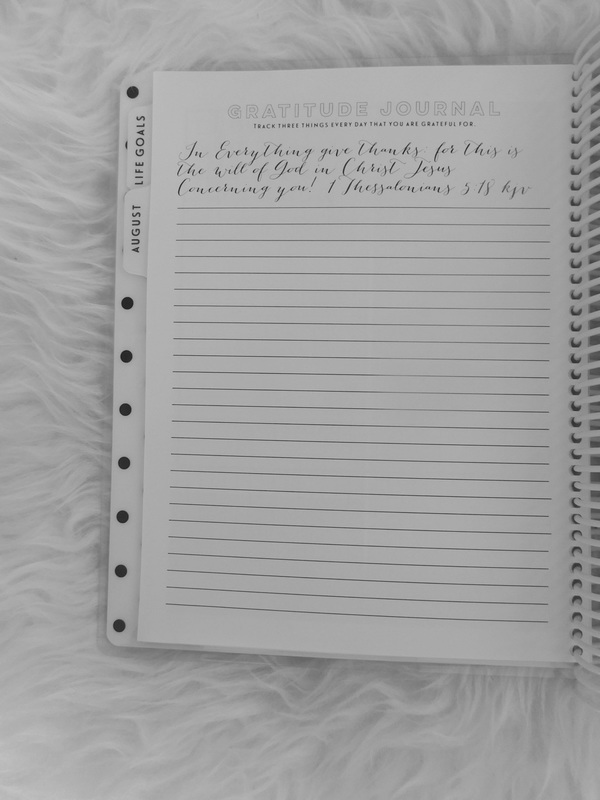 GRATITUDE JOURNAL
TRACK THREE THINGS EVERY DAY THAT YOU ARE GRATEFUL FOR.
In Everything give thanks: for this is
the will of God in Christ Jesus
Concerning you! 1 Thessalonians 5:18 kjv
LIFE GOALS
AUGUST